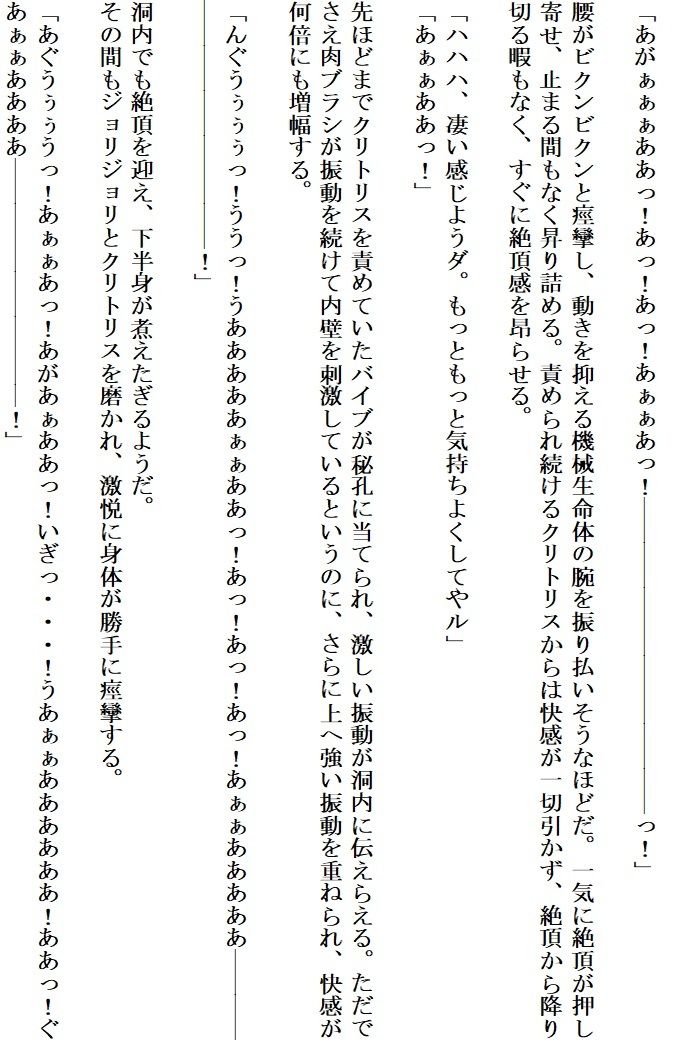 「あがぁぁぁああっ！あっ！あっ！あぁぁあっ！――――――――っ！」
腰がビクンビクンと痙攣し、動きを抑える機械生命体の腕を振り払いそうなほどだ。一気に絶頂が押し
寄せ、止まる間もなく昇り詰める。責められ続けるクリトリスからは快感が一切引かず、絶頂から降り
切る暇もなく、すぐに絶頂感を昂らせる。
「ハハハ、凄い感じようダ。もっともっと気持ちよくしてやル」
「あぁぁああっ！」
先ほどまでクリトリスを責めていたバイブが秘孔に当てられ、激しい振動が洞内に伝えらえる。ただで
さえ肉ブラシが振動を続けて内壁を刺激しているというのに、さらに上へ強い振動を重ねられ、快感が
何倍にも増幅する。
「んぐうぅぅぅっ！ううっ！うあああああぁぁああっ！あっ！あっ！あっ！あぁぁあああああ――
――――――！」
洞内でも絶頂を迎え、下半身が煮えたぎるようだ。
その間もジョリジョリとクリトリスを磨かれ、激悦に身体が勝手に痙攣する。
「あぐうぅぅうっ！あぁぁあっ！あがあぁああっ！いぎっ・・・！うあぁぁあああああああ！ああっ！ぐ
あぁぁああああ――――――！」